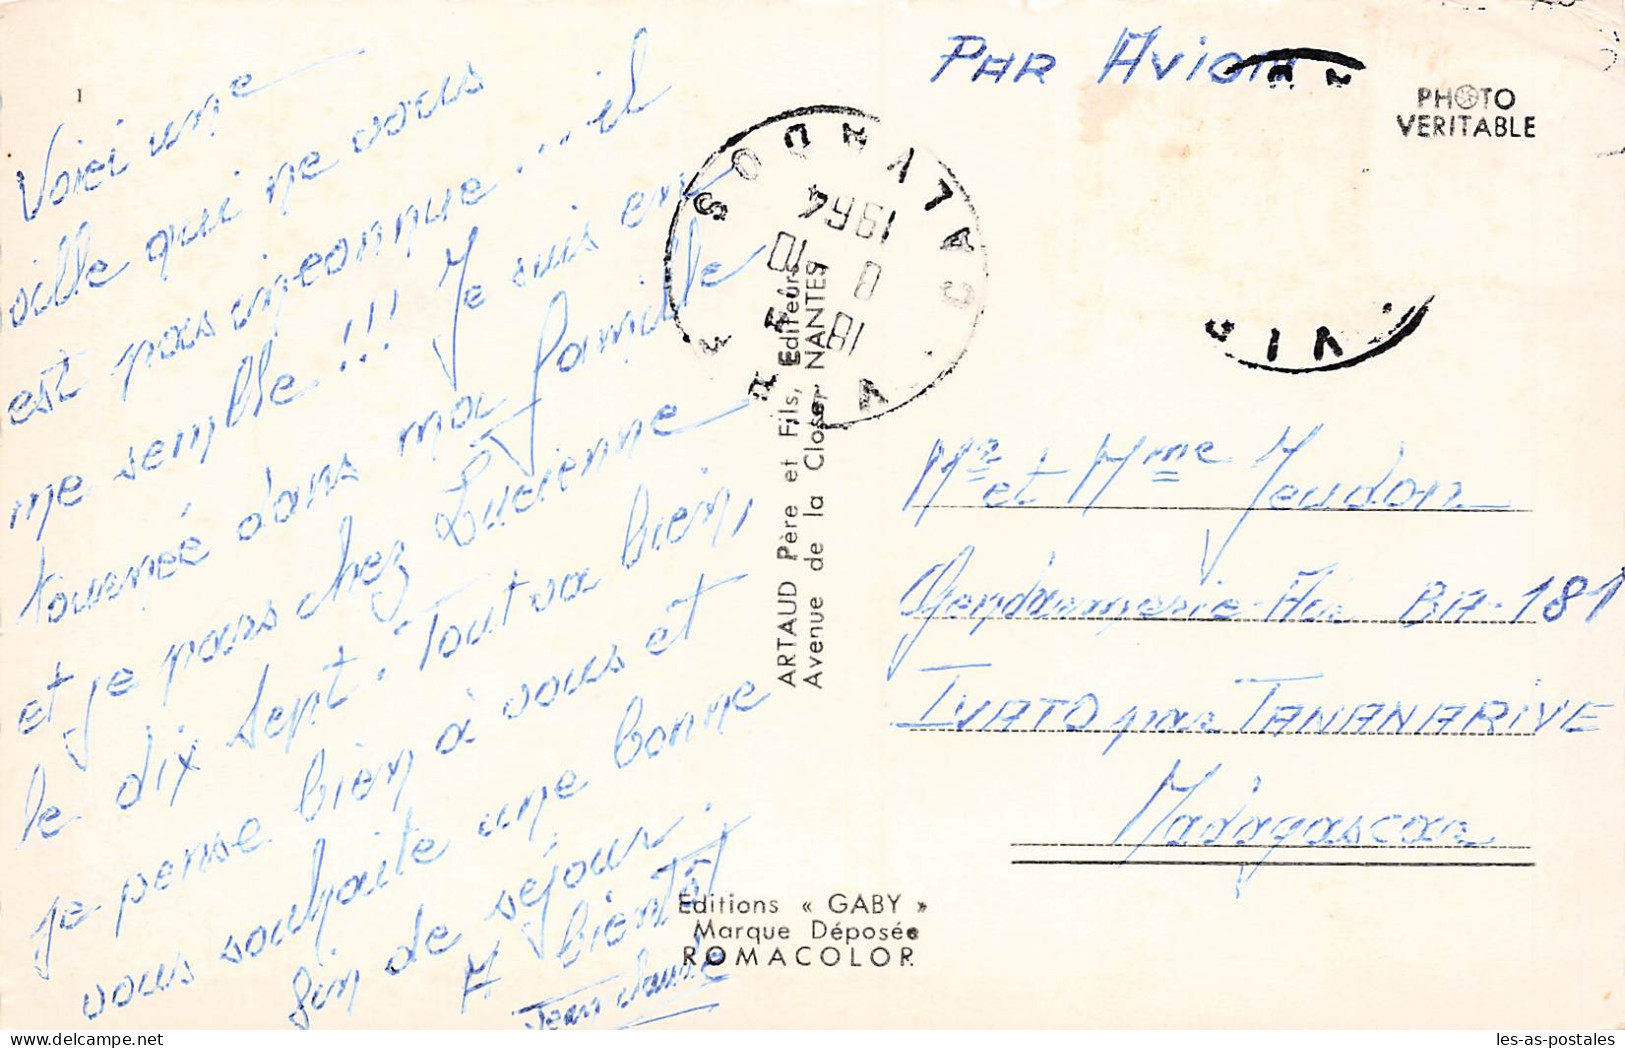 Voici une
ville qui ne vous
est pas inconnue... il
me semble!!! Je suis en
tournée dans ma famille
et je pars chez Lucienne
le dix sept. Tout va bien,
je pense bien à vous et
vous souhaite une bonne
fin de séjour.
A bientôt
Jean Claude
PAR AVION
PHOTO
VERITABLE
CALVADOS
18 H
8 10
1964
ARTAUD Père et Fils, Editeurs
Avenue de la Close, NANTES
Mr et Mme Jeudon
Gendarmerie Air BA-181
IVATO par TANANARIVE
Madagascar
Editions « GABY »
Marque Déposée
ROMACOLOR
les-as-postales